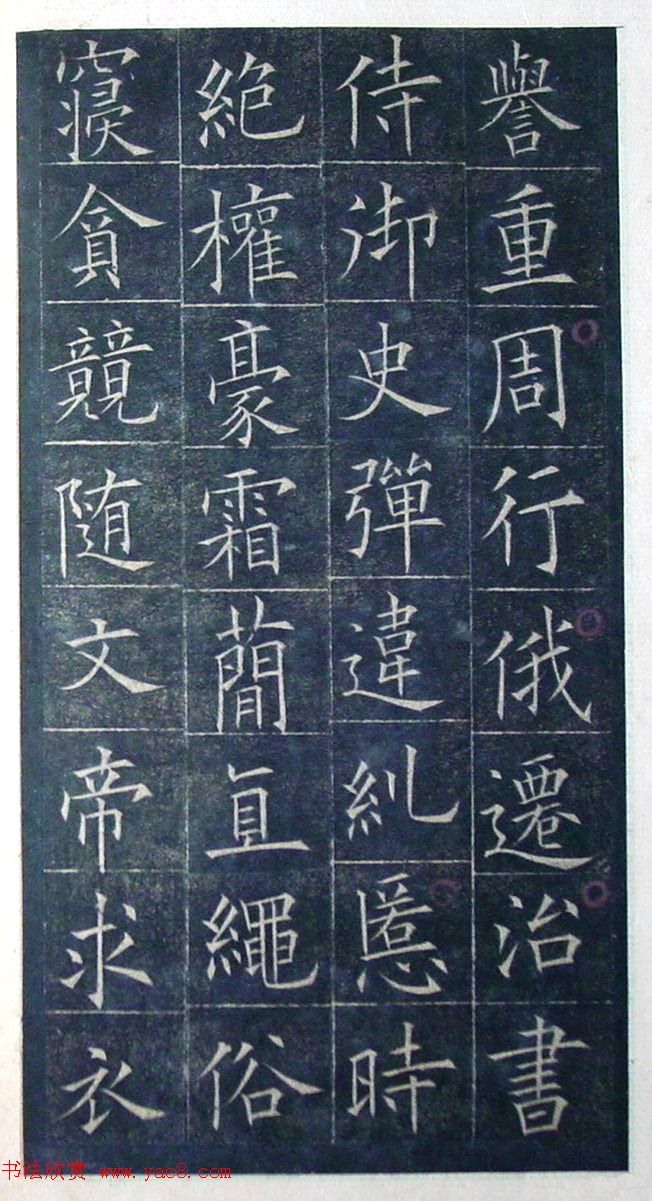 譽重周行俄遷治書
侍御史彈違糺慝時
絶權豪霜蕳直繩俗
寑貪競随文帝求衣
书法欣赏 www.yac8.com